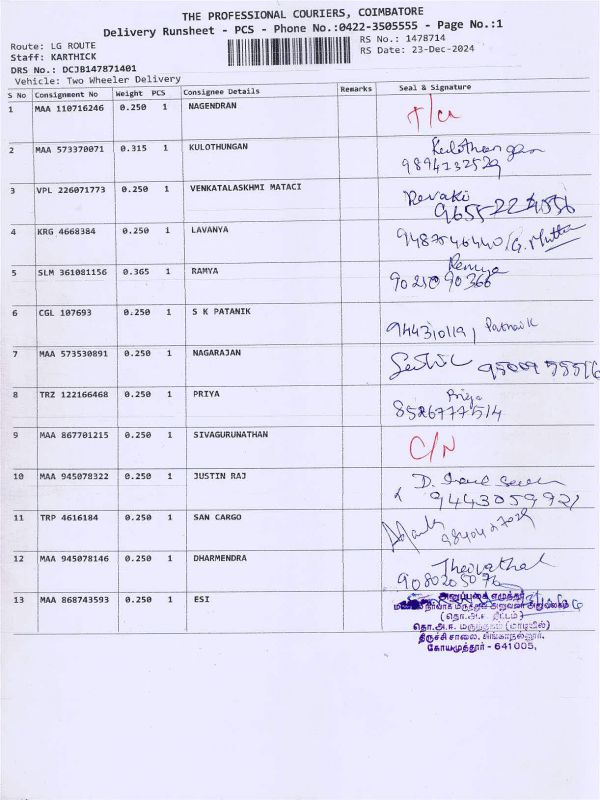 THE PROFESSIONAL COURIERS, COIMBATORE
Delivery Runsheet - PCS - Phone No.:0422-3505555 - Page No.:1
Route: LG ROUTE
RS No.: 1478714
Staff: KARTHICK
RS Date: 23-Dec-2024
DRS No.: DCJB147871401
Vehicle: Two Wheeler Delivery
S No Consignment No Weight PCS Consignee Details Remarks Seal & Signature
1 MAA 110716246 0.250 1 NAGENDRAN
2 MAA 573370071 0.315 1 KULOTHUNGAN Kulothungan
9894132529
3 VPL 226071773 0.250 1 VENKATALASKHMI MATACI Revaki
4 KRG 4668384 0.250 1 LAVANYA 9487546440/G. Muthu
5 SLM 361081156 0.365 1 RAMYA Remya
90250 90366
6 CGL 107693 0.250 1 S K PATANIK 944310119, Patnaik
7 MAA 573530891 0.250 1 NAGARAJAN
8 TRZ 122166468 0.250 1 PRIYA Priya
8526777514
9 MAA 867701215 0.250 1 SIVAGURUNATHAN C/N
10 MAA 945078322 0.250 1 JUSTIN RAJ D.
9443059921
11 TRP 4616184 0.250 1 SAN CARGO
12 MAA 945078146 0.250 1 DHARMENDRA
9080205076
13 MAA 868743593 0.250 1 ESI
(தொ.அ.ஈ. திட்டம்)
தொ.அ.ஈ. மருந்தகம் (மாடியில்)
திருச்சி சாலை, சிங்காநல்லூர்,
கோயமுத்தூர் - 641005.